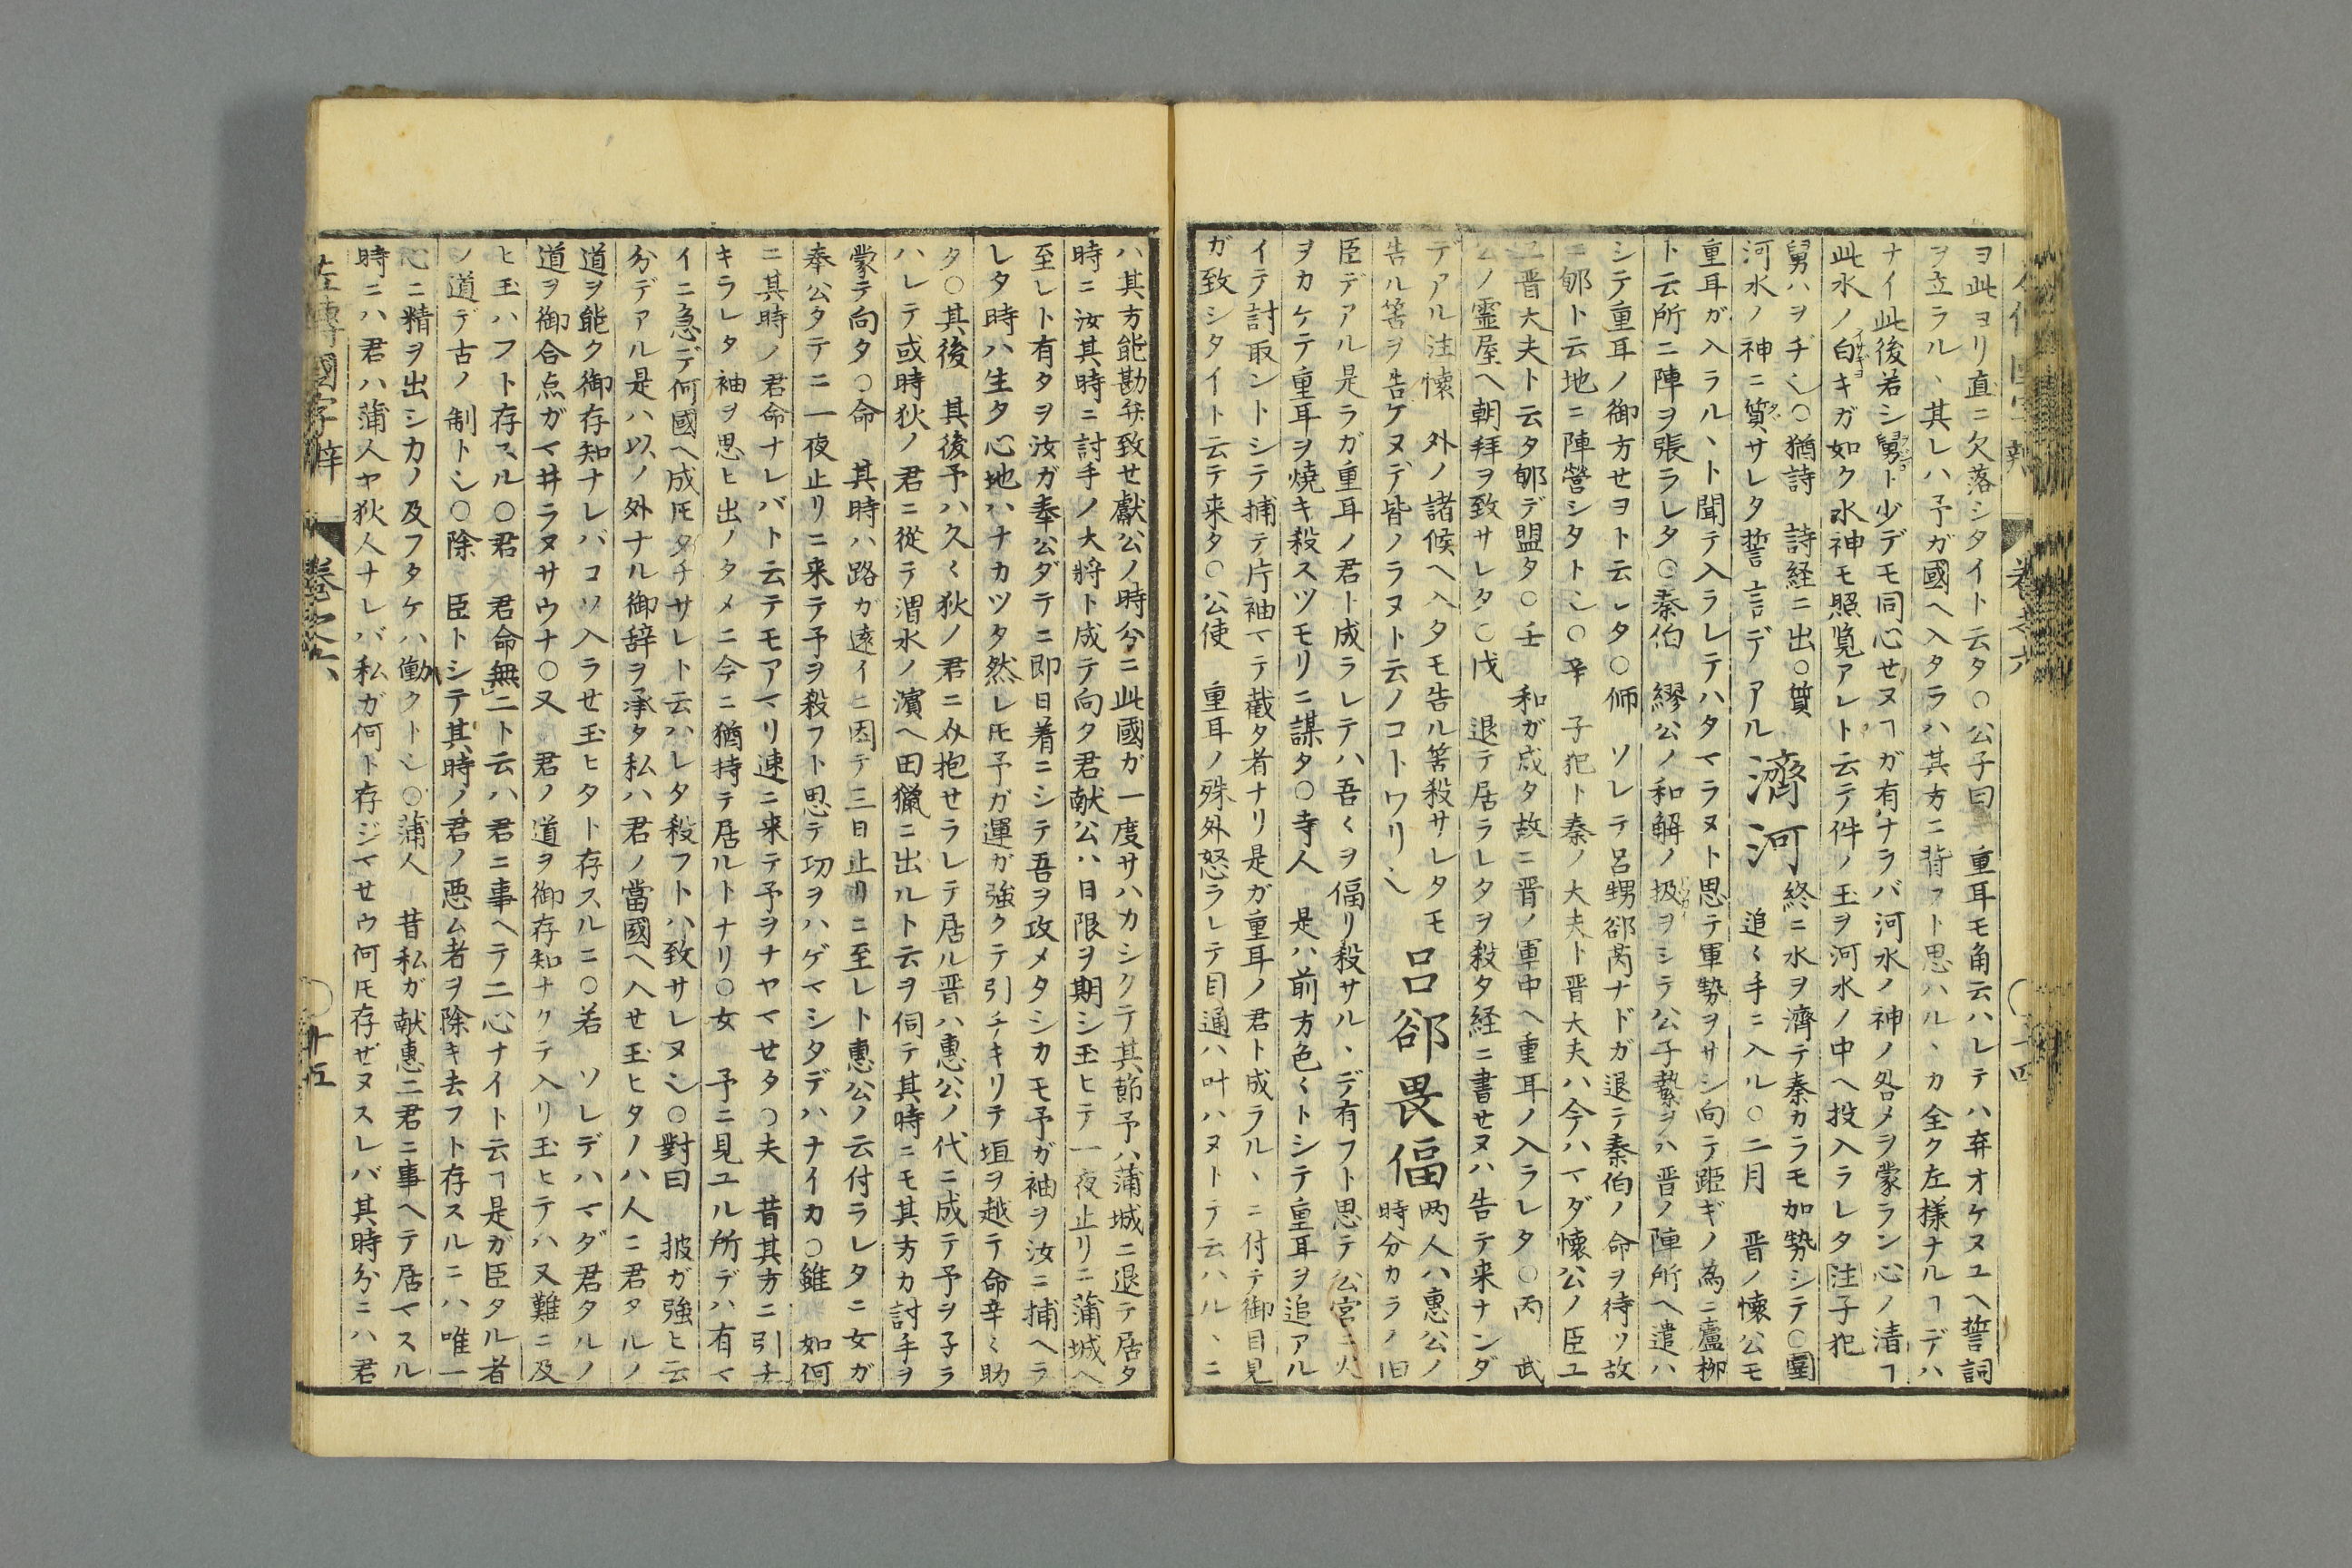 ヨ此ヨリ直ニ欠落シタイト云タ○公子曰　重耳モ角云ハレテハ弃オケヌユヘ誓詞
ヲ立ラル、其レハ予ガ國ヘ入タラハ其方ニ背フト思ハル、カ全ク左様ナルヿデハ
ナイ此後若シ舅ト少デモ同心セヌヿガ有ナラバ河水ノ神ノ咎メヲ蒙ラン心ノ清ヿ
此水ノ白キガ如ク水神モ照覧アレト云テ件ノ玉ヲ河水ノ中ヘ投入ラレタ注子犯
舅ハヲヂ也○猶詩　詩経ニ出○質
河水ノ神ニ質サレタ誓言デアル
濟河
終ニ水ヲ濟テ秦カラモ加勢シテ○圍
追〻手ニ入ル○二月　晋ノ懐公モ
重耳ガ入ラル、ト聞テ入ラレテハタマラヌト思テ軍勢ヲサシ向テ距ギノ為ニ廬柳
ト云所ニ陣ヲ張ラレタ○秦伯　繆公ノ和解ノ扱ヲシテ公子縶ヲハ晋ノ陣所ヘ遣ハ
シテ重耳ノ御方セヨト云レタ○師　ソレテ呂甥郤芮ナドガ退テ秦伯ノ命ヲ待ツ故
ニ郇ト云地ニ陣營シタト也○辛　子犯ト秦ノ大夫ト晋大夫ハ今ハマダ懐公ノ臣ユ
ヱ晋大夫ト云タ郇デ盟タ○壬　和ガ成タ故ニ晋ノ軍中ヘ重耳ノ入ラレタ○丙　武
公ノ霊屋ヘ朝拜ヲ致サレタ○戊　退テ居ラレタヲ殺タ経ニ書セヌハ告テ来ナンダ
デアル注懐　外ノ諸候ヘ入タモ告ル筈殺サレタモ
告ル筈ヲ告ケヌデ皆ノラヌト云ノコトワリ也
呂郤畏偪
两人ハ惠公ノ
時分カラノ旧
臣デアル是ラガ重耳ノ君ト成ラレテハ吾〻ヲ偪リ殺サル、デ有フト思テ公宮ニ火
ヲカケテ重耳ヲ燒キ殺スツモリニ謀タ○寺人　是ハ前方色〻トシテ重耳ヲ追アル
イテ討取ントシテ捕テ片袖マテ截タ者ナリ是ガ重耳ノ君ト成ラル、ニ付テ御目見
ガ致シタイト云テ来タ○公使　重耳ノ殊外怒ラレテ目通ハ叶ハヌトテ云ハル、ニ
ハ其方能勘弁致セ獻公ノ時分ニ此國ガ一度サハカシクテ其節予ハ蒲城ニ退テ居タ
時ニ汝其時ニ討手ノ大将ト成テ向タ君献公ハ日限ヲ期シ玉ヒテ一夜止リニ蒲城ヘ
至レト有タヲ汝ガ奉公ダテニ即日着ニシテ吾ヲ攻メタシカモ予ガ袖ヲ汝ニ捕ヘラ
レタ時ハ生タ心地ハナカツタ然レ𪜈予ガ運ガ強クテ引チキリテ垣ヲ越テ命辛〻助
タ○其後　其後予ハ久〻狄ノ君ニ介抱セラレテ居ル晋ハ惠公ノ代ニ成テ予ヲ子ラ
ハレテ或時狄ノ君ニ從テ渭水ノ濱ヘ田獵ニ出ルト云ヲ伺テ其時ニモ其方カ討手ヲ
蒙テ向タ○命　其時ハ路ガ遠イニ因テ三日止リニ至レト惠公ノ云付ラレタニ女ガ
奉公タテニ一夜止リニ来テ予ヲ殺フト思テ功ヲハゲマシタデハナイカ○雖　如何
ニ其時ノ君命ナレバト云テモアマリ速ニ来テ予ヲナヤマセタ○夫　昔其方ニ引チ
キラレタ袖ヲ思ヒ出ノタメニ今ニ猶持テ居ルトナリ○女　予ニ見ユル所デハ有マ
イニ急デ何國ヘ成𪜈タチサレト云ハレタ殺フトハ致サレヌ也○對曰　披ガ強ヒ云
分デアル是ハ以ノ外ナル御辞ヲ承タ私ハ君ノ當國ヘ入セ玉ヒタノハ人ニ君タルノ
道ヲ能ク御存知ナレバコソ入ラセ玉ヒタト存スルニ○若　ソレデハマダ君タルノ
道ヲ御合点ガマ井ラヌサウナ○又　君ノ道ヲ御存知ナクテ入リ玉ヒテハ又難ニ及
ヒ玉ハフト存スル○君　君命無二ト云ハ君ニ事ヘテ二心ナイト云ヿ是ガ臣タル者
ノ道デ古ノ制ト也○除　臣トシテ其時ノ君ノ悪ム者ヲ除キ去フト存スルニハ唯一
心ニ精ヲ出シカノ及フタケハ働クト也○蒲人　昔私ガ献惠二君ニ事ヘテ居マスル
時ニハ君ハ蒲人ヤ狄人ナレバ私ガ何ト存ジマセウ何𪜈存ゼヌスレバ其時分ニハ君
左傳國字辯　卷之六　○廿五